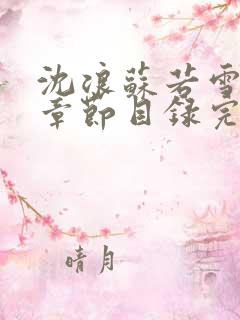 沈浪蘇若雪
章節目錄完
晴月